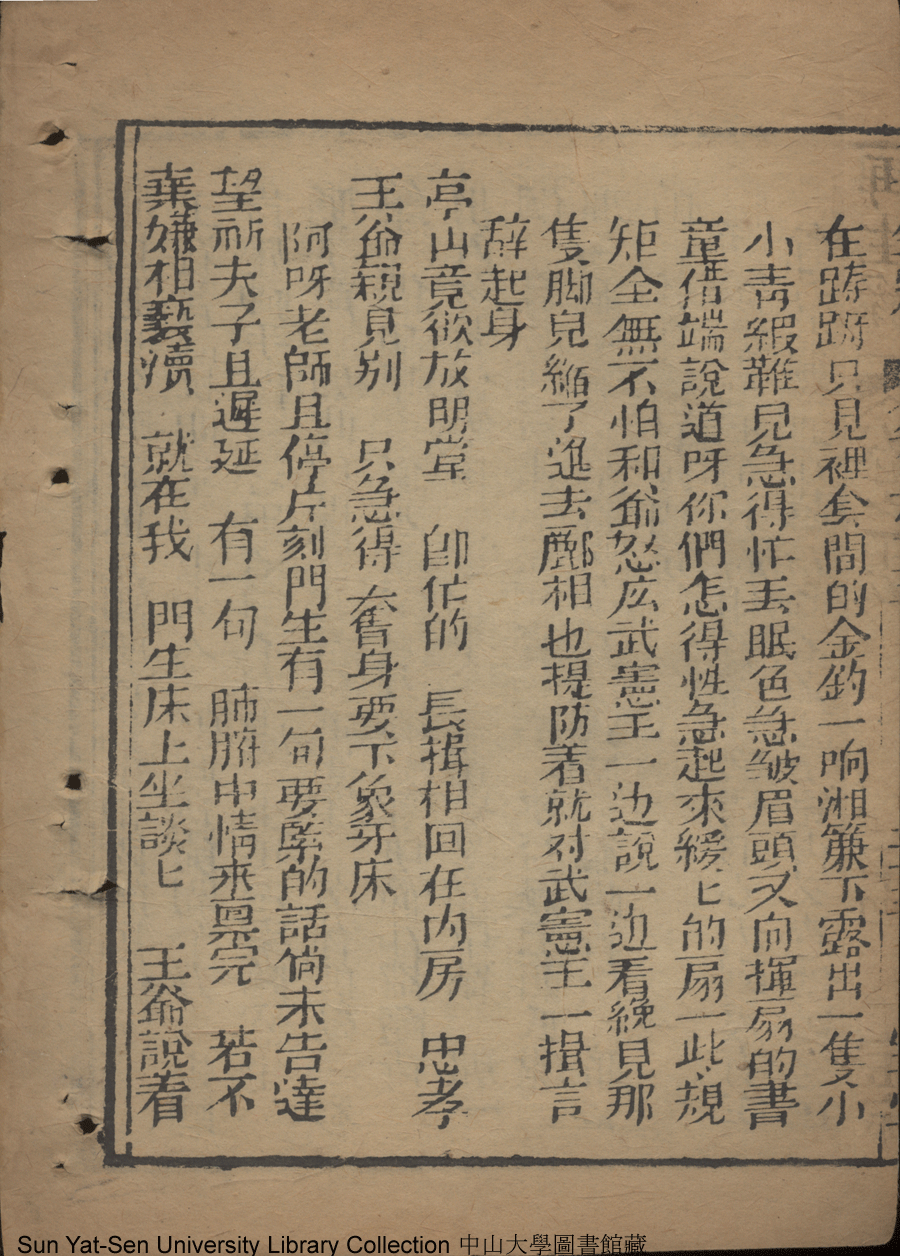 在躊躇只見裡套間的金鈎一响湘簾下露出一隻小
小青緞難見急得忙丢眠色急皱眉頭又向揮扇的書
童借端說道呀你們怎得性急起來緩匕的扇一些規
矩全無不怕和爺怒広武憲王一边說一边看纔見那
隻脚兒縮了進去酈相也提防着就对武憲王一揖言
辞起身
亭山竟欲放明堂 卽忙的 長揖相回在内房 忠孝
王爺親見别 只急得 奮身要下象牙床
阿呀老師且停片刻門生有一句要緊的話倘未告達
望祈夫子且遲延 有一句 肺腑中情來禀完 若不
棄嫌相褻瀆 就在我 門生床上坐談匕 王爺說着
Sun Yat-Sen University Library Collection 中山大學圖書館藏